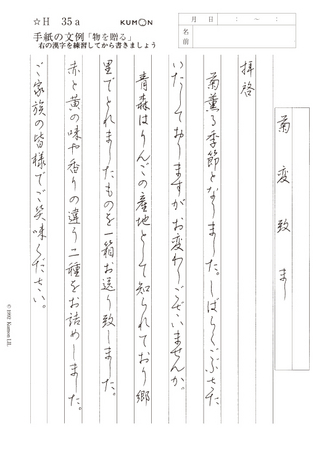 ☆H 35a
KUMON
月 日 ： ～ ：
名前
手紙の文例「物を贈る」
右の漢字を練習してから書きましょう
菊 変 致 ま
拝啓
菊薫る季節となりました。しばらくごぶさた
いたしておりますがお変わりございませんか。
青森はりんごの産地として知られており郷
里でとれましたものを一箱お送り致しました。
赤と黄の味や香りの違う二種をお詰めしました。
ご家族の皆様でご笑味ください。
© 1992 Kumon LIL